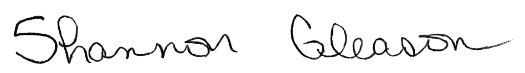 Shannon Gleason